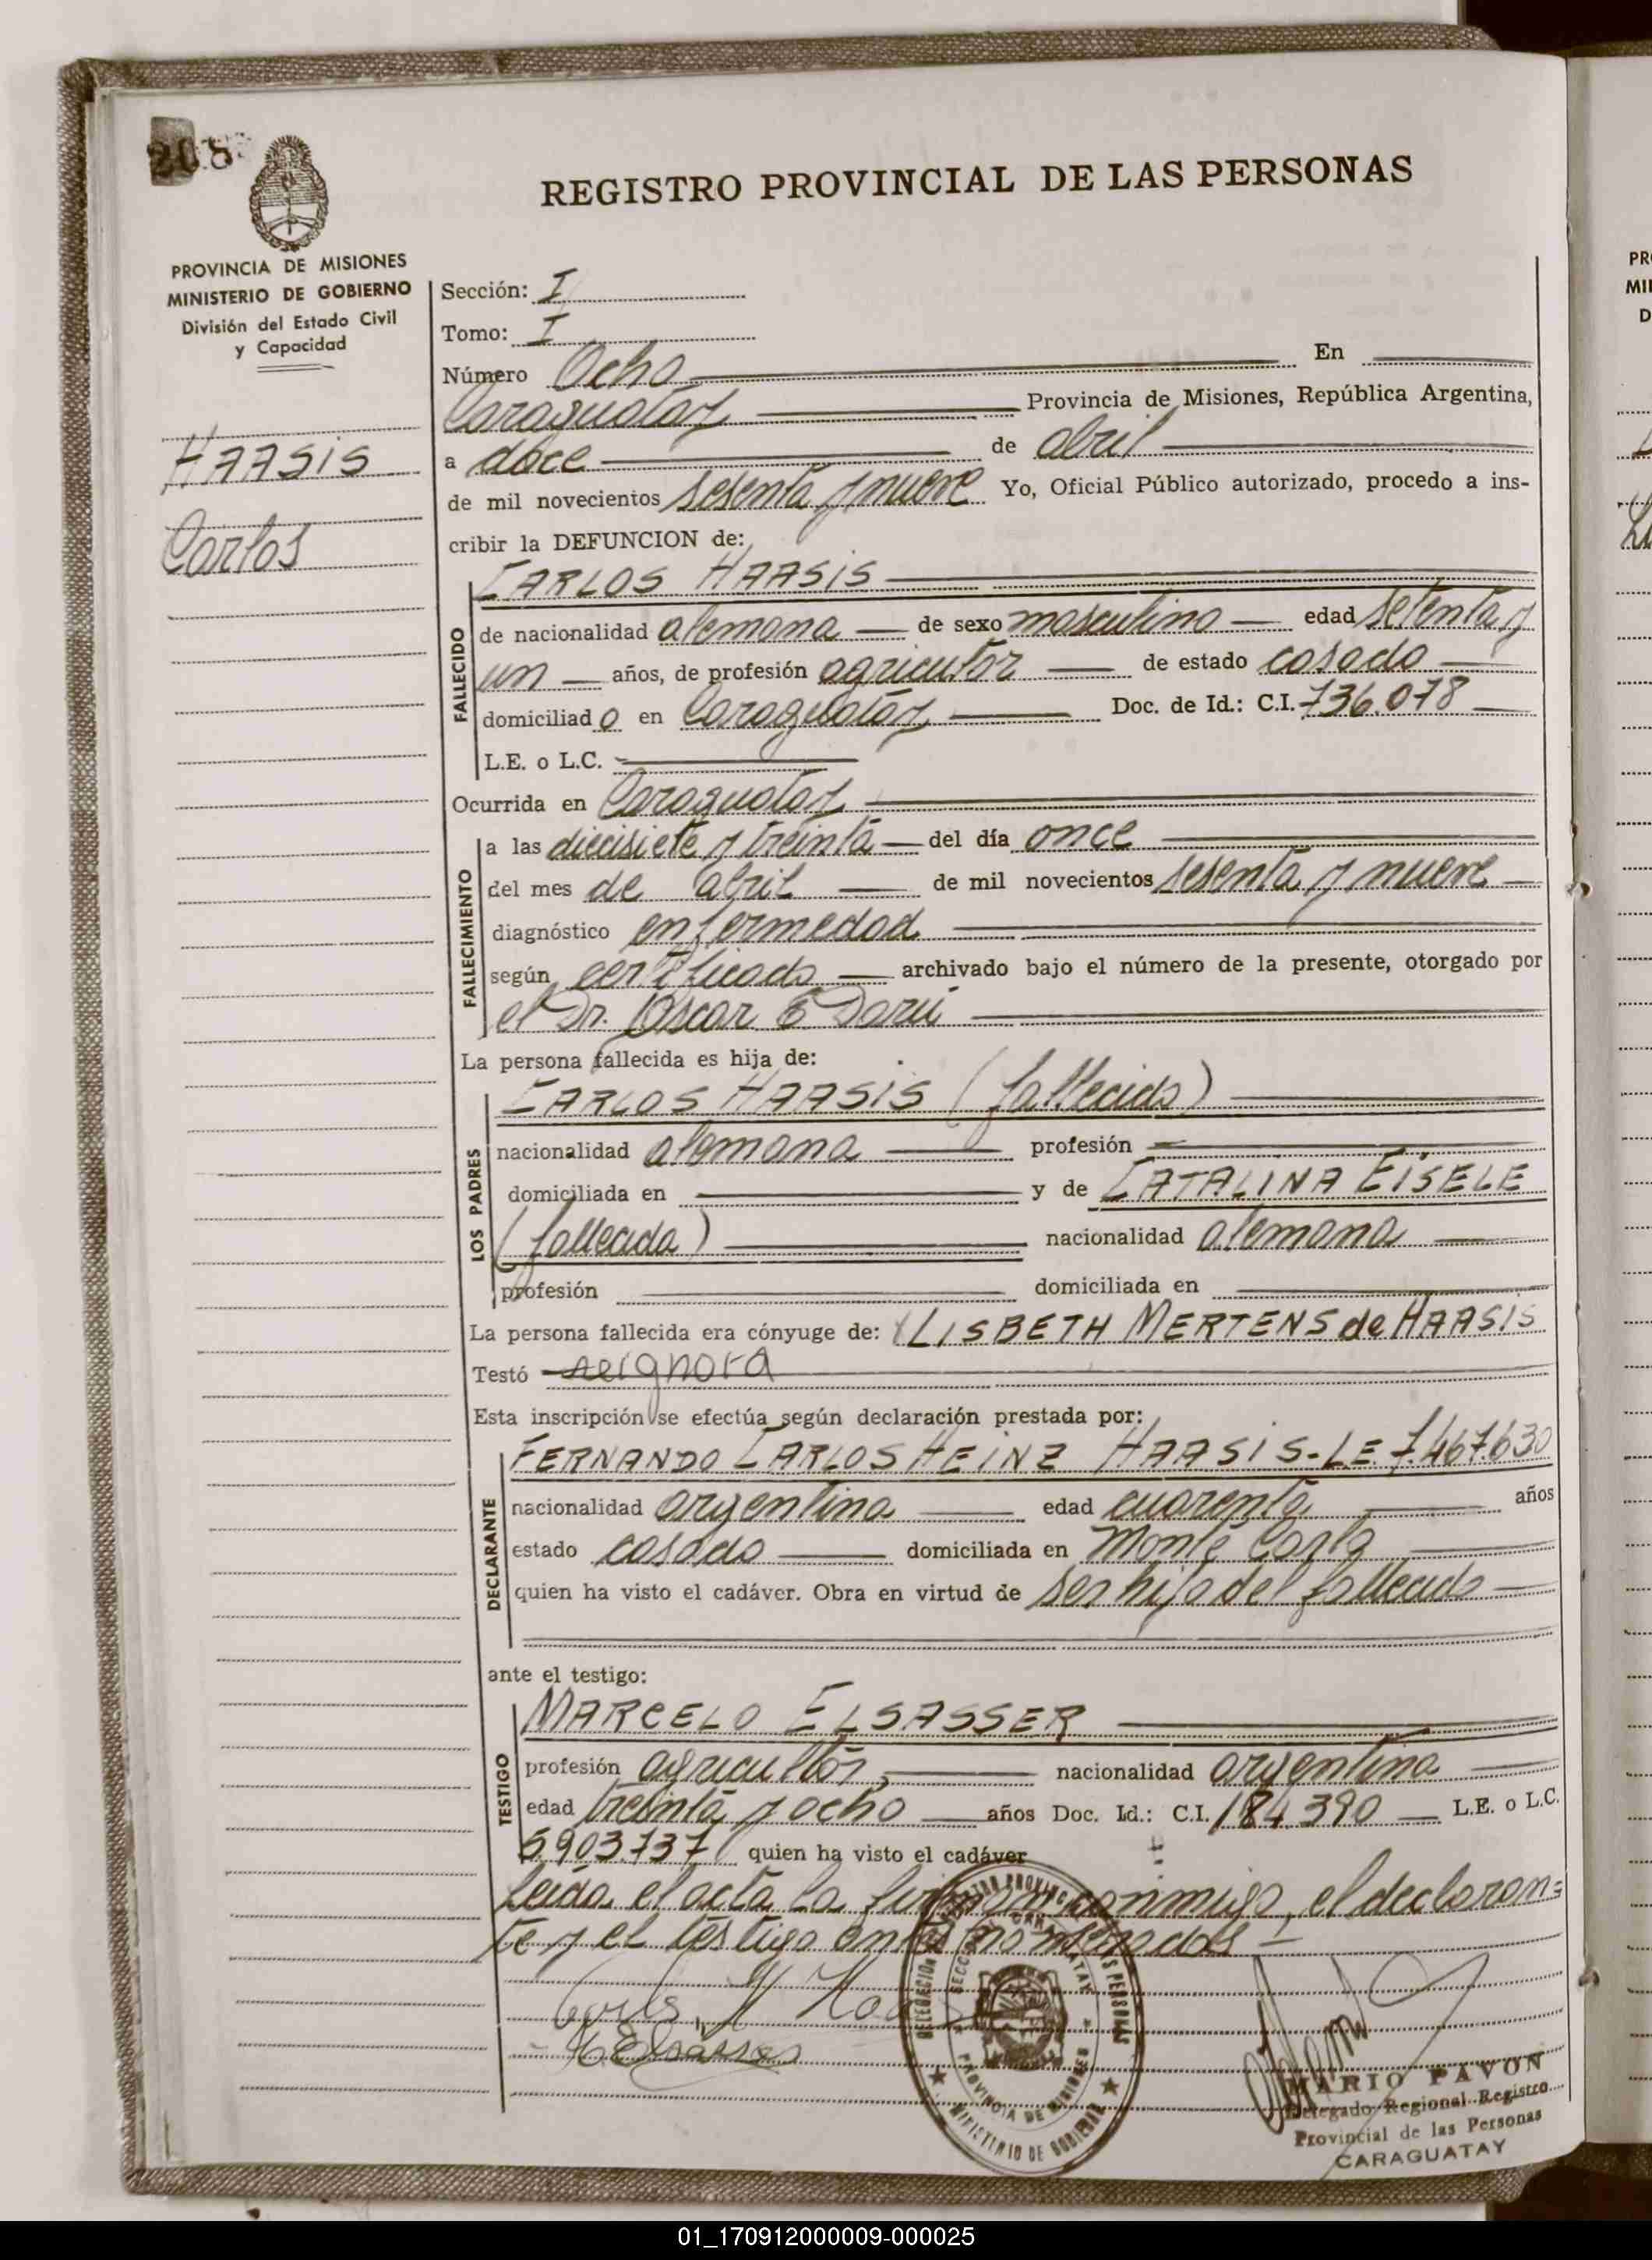 208
REGISTRO PROVINCIAL DE LAS PERSONAS
PROVINCIA DE MISIONES
MINISTERIO DE GOBIERNO
División del Estado Civil
y Capacidad
HAASIS
Carlos
Sección: I
Tomo: I
Número Ocho En
Caraguatay Provincia de Misiones, República Argentina,
a doce de abril
de mil novecientos sesenta y nueve Yo, Oficial Público autorizado, procedo a ins-
cribir la DEFUNCION de:
FALLECIDO
CARLOS HAASIS
de nacionalidad alemana de sexo masculino edad setenta y
un años, de profesión agricultor de estado casado
domiciliado en Caraguatay Doc. de Id.: C.I. 736.078
L.E. o L.C.
Ocurrida en Caraguatay
FALLECIMIENTO
a las diecisiete y treinta del día once
del mes de abril de mil novecientos sesenta y nueve
diagnóstico enfermedad
según certificado archivado bajo el número de la presente, otorgado por
el Dr. Oscar E Darú
La persona fallecida es hija de:
LOS PADRES
CARLOS HAASIS (fallecido)
nacionalidad alemana profesión
domiciliada en y de CATALINA EISELE
(fallecida) nacionalidad alemana
profesión domiciliada en
La persona fallecida era cónyuge de: LISBETH MERTENS de HAASIS
Testó se ignora
Esta inscripción se efectúa según declaración prestada por:
DECLARANTE
FERNANDO CARLOS HEINZ HAASIS-L.E. 7.467.630
nacionalidad argentina edad cuarenta años
estado casado domiciliada en Monte Carlo
quien ha visto el cadáver. Obra en virtud de ser hijo del fallecido
ante el testigo:
TESTIGO
MARCELO ELSASSER
profesión agricultor, nacionalidad argentina
edad treinta y ocho años Doc. Id.: C.I. 184.390 L.E. o L.C.
5.903.737 quien ha visto el cadáver
Leída el acta la firman conmigo, el declaran=
te y el testigo antes nombrados
M Elsasser
SECCION CARAGUATAY
PROVINCIA DE MISIONES
MINISTERIO DE GOBIERNO
MARIO PAVON
Delegado Regional Registro
Provincial de las Personas
CARAGUATAY
01_170912000009-000025